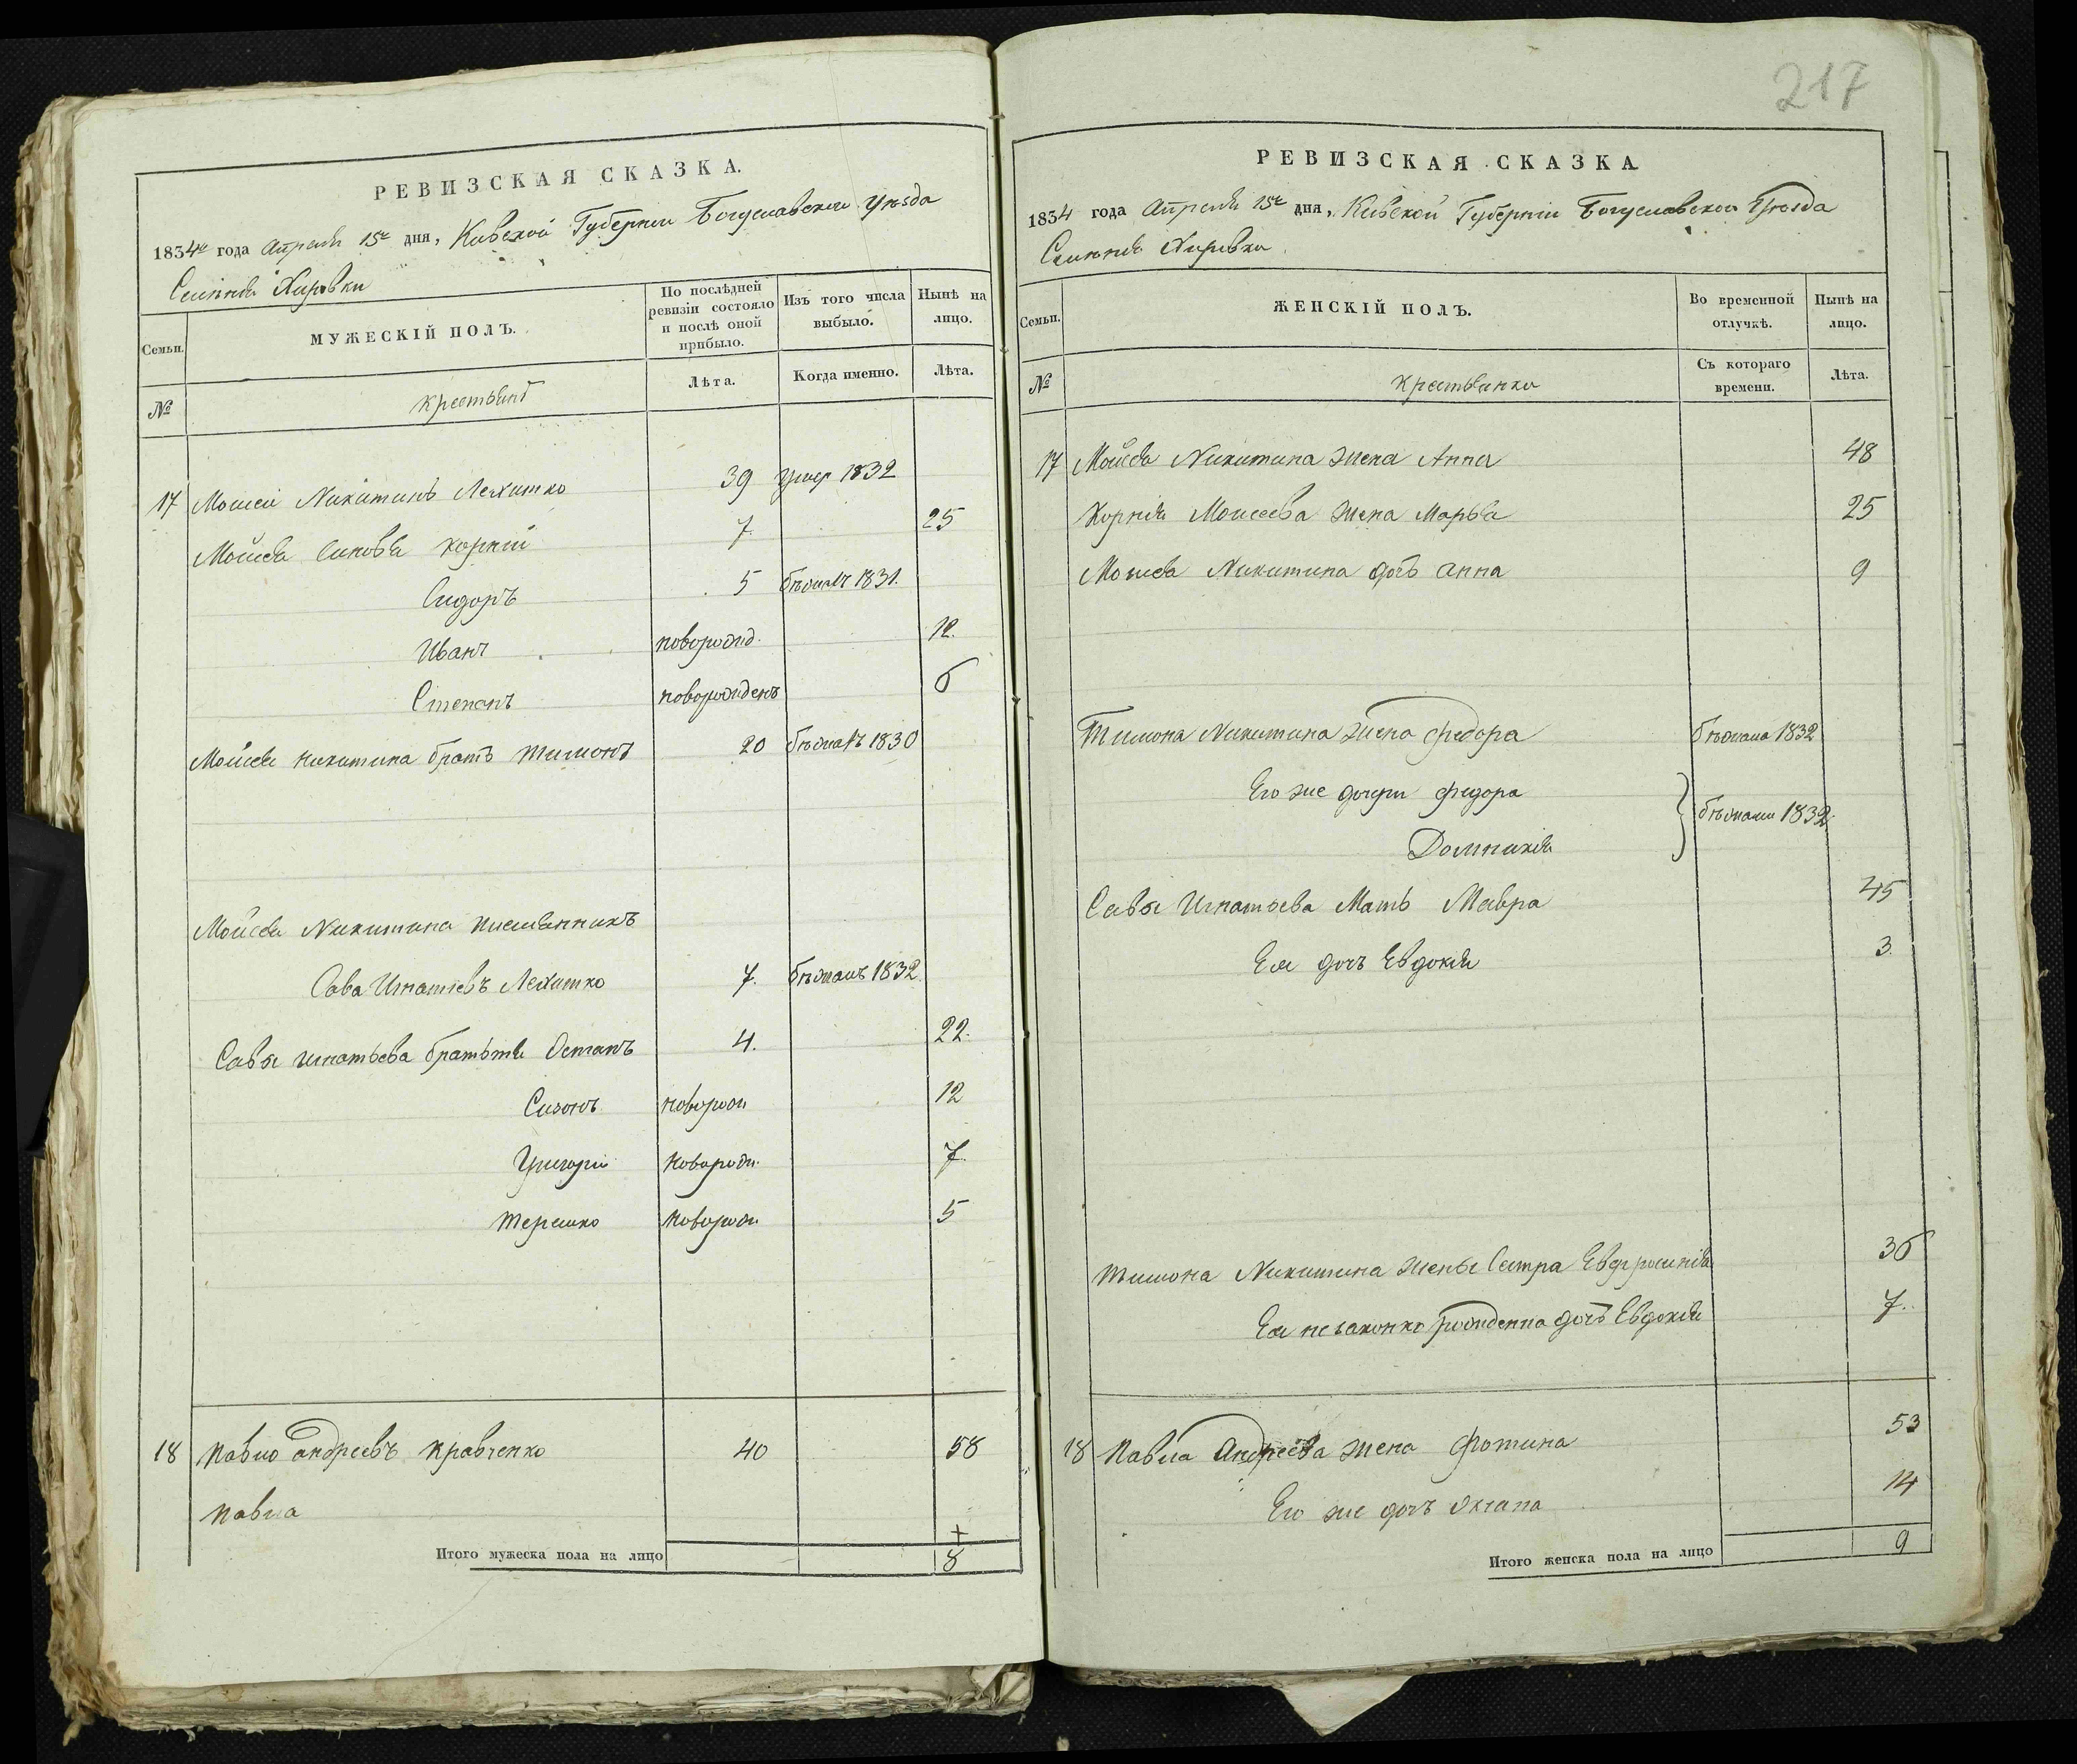 РЕВИЗСКАЯ СКАЗКА.
1834го года Апреля 15го дня, Киевской Губернии Богуславского Уѣзда
Селения Хировки
Семьи.
МУЖЕСКІЙ ПОЛЪ.
По послѣдней ревизіи состояло и послѣ оной прибыло.
Изъ того числа выбыло.
Нынѣ на лицо.
№
крестьянъ
Лѣта.
Когда именно.
Лѣта.
17 Моисей Никитинъ 39 умер 1832
Моисея синовья Корній 7 25
Сидоръ 5 бѣжалъ 1831.
Иванъ новорожд. 12.
Степанъ новорожденъ 6
Моисея никитина братъ тимонъ 20 бѣжалъ 1830
Моисея Никитина племянникъ
Сава Игнатіевъ 7. бѣжалъ 1832
Савы игнатьева братьтя Остапъ 4. 22.
Сизонъ новорож 12
Григорій новорож. 7
терешко новорож 5
18 Павло андреевъ кравченко 40 58
Павла
+
Итого мужеска пола на лицо 8
217
РЕВИЗСКАЯ СКАЗКА
1834 года Апреля 15го дня, Киевской Губерніи Богуславского Уѣзда
Селения Хировки
Семьи.
ЖЕНСКІЙ ПОЛЪ.
Во временной отлучкѣ.
Нынѣ на лицо.
№
крестьянки
Съ котораго времени.
Лѣта.
17 Моисея Никитина жена Анна 48
Корнія Моисеева жена Марья 25
Моисея Никитина дочъ анна 9
Тимона Никитина жена федора бѣжала 1832
Его же дочери федора
} бѣжали 1832.
Домникія
Савы Игнатьева Мать Мавра 45
Ея дочъ Евдокія 3
тимона Никитина жены Сестра Евфросинія 36
Ея незаконно рожденна дочъ Евдокія 7.
18 Павла Андреева жена фотина 53
Его же дочъ Оксана 14
Итого женска пола на лицо 9